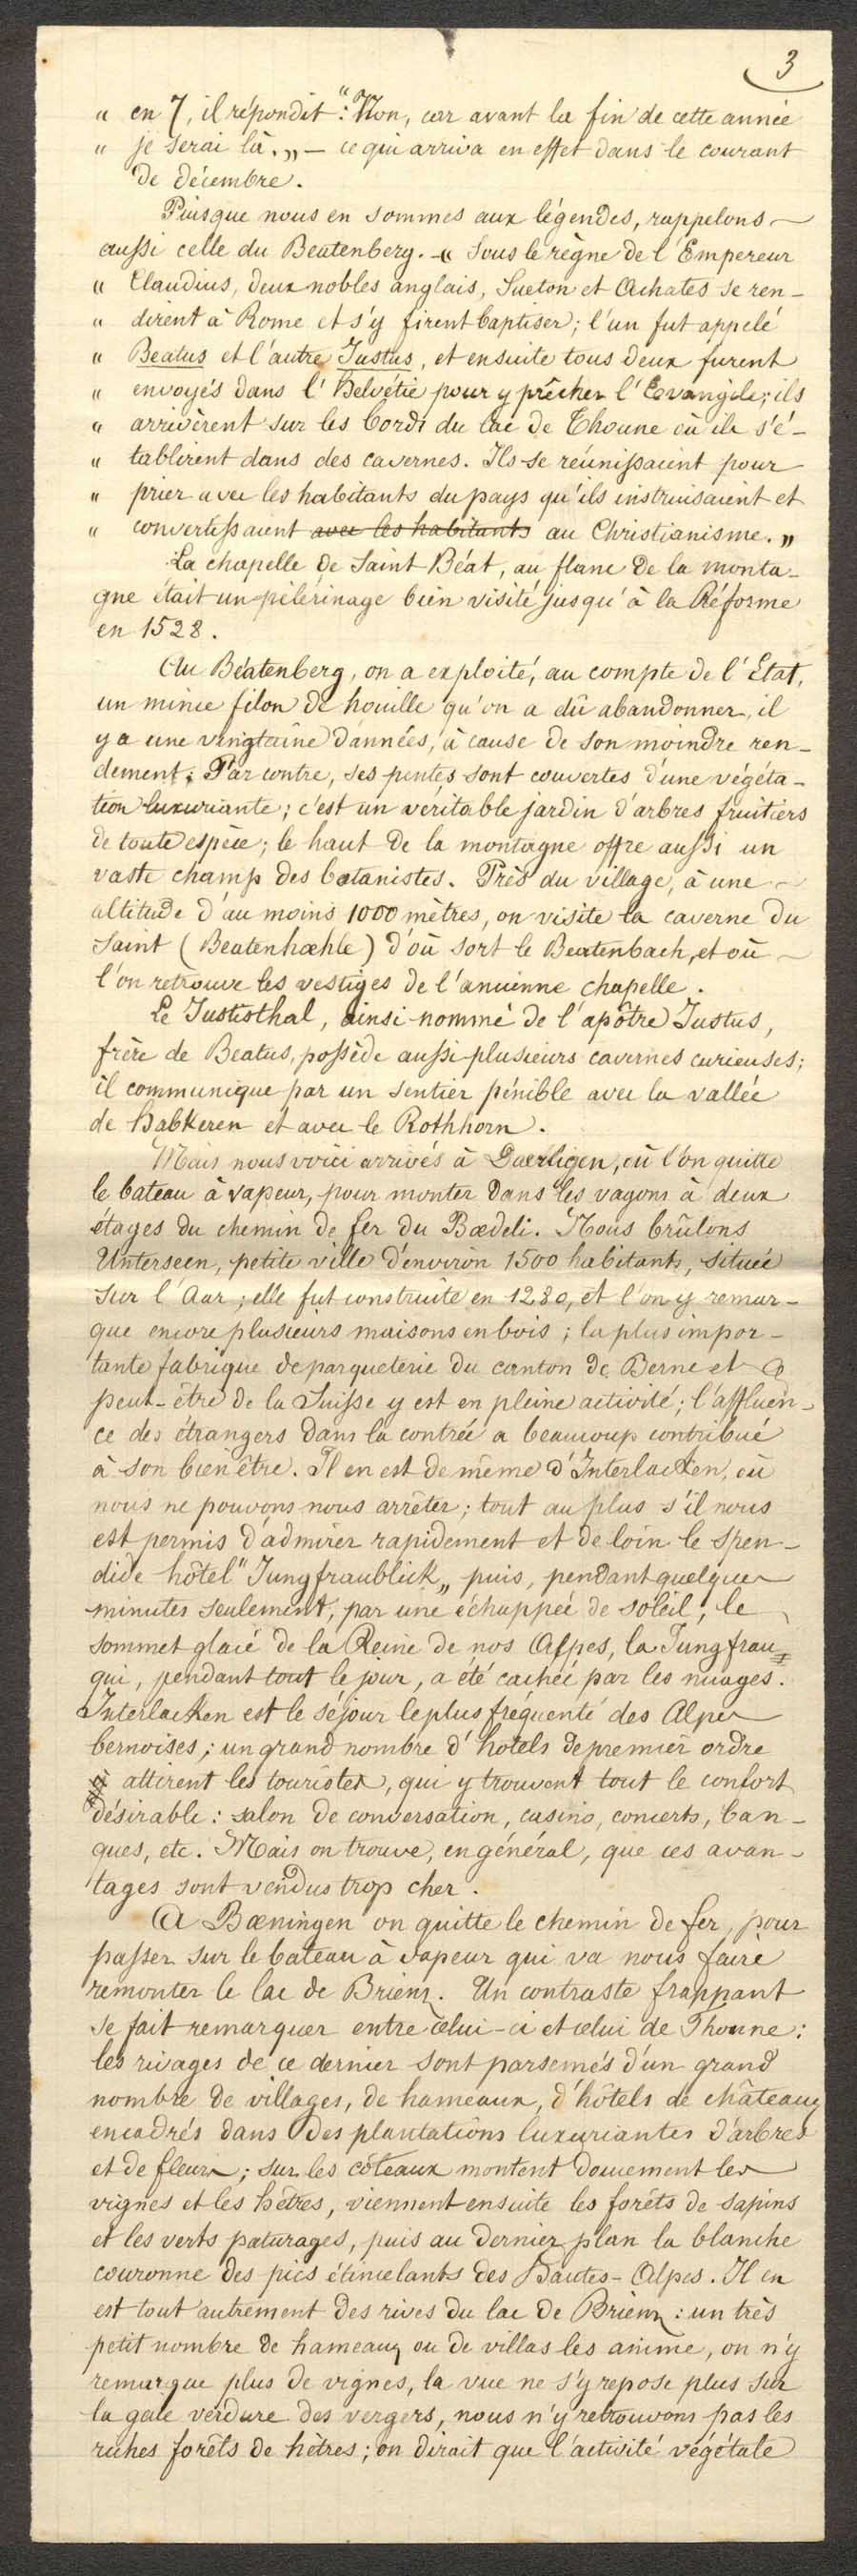 3
" en 7, il répondit": Non, car avant la fin de cette année
" je serai là.„ — ce qui arriva en effet dans le courant
de décembre.
Puisque nous en sommes aux légendes, rappelons
aussi celle du Beatenberg. — « Sous le règne de l'Empereur
" Claudius, deux nobles anglais, Sueton et Achates se ren-
" dirent à Rome et s'y firent baptiser; l'un fut appelé
" Beatus et l'autre Justus, et ensuite tous deux furent
" envoyés dans l'Helvétie pour y prêcher l'Evangile; ils
" arrivèrent sur les bords du lac de Thoune où ils s'é-
" tablirent dans des cavernes. Ils se réunissaient pour
" prier avec les habitants du pays qu'ils instruisaient et
" convertissaient avec les habitants au Christianisme.„
La chapelle de Saint Béat, au flanc de la monta-
gne était un pélérinage bien visité jusqu'à la Réforme
en 1528.
Au Béatenberg, on a exploité, au compte de l'État,
un mince filon de houille qu'on a dû abandonner, il
y a une vingtaine d'années, à cause de son moindre ren-
dement. Par contre, ses pentes sont couvertes d'une végéta-
tion luxuriante; c'est un véritable jardin d'arbres fruitiers
de toute espèce; le haut de la montagne offre aussi un
vaste champ des botanistes. Près du village, à une
altitude d'au moins 1000 mètres, on visite la caverne du
Saint (Beatenhœhle) d'où sort le Beatenbach, et où
l'on retrouve les vestiges de l'ancienne chapelle.
Le Justisthal, ainsi nommé de l'apôtre Justus,
frère de Beatus, possède aussi plusieurs cavernes curieuses;
il communique par un sentier pénible avec la vallée
de Habkeren et avec le Rothhorn.
Mais nous voici arrivés à Daerligen, où l'on quitte
le bateau à vapeur, pour monter dans les vagons à deux
étages du chemin de fer du Bœdeli. Nous brûlons
Unterseen, petite ville d'environ 1500 habitants, située
sur l'Aar; elle fut construite en 1280, et l'on y remar-
que encore plusieurs maisons en bois; la plus impor-
tante fabrique de parqueterie du canton de Berne et
peut-être de la Suisse y est en pleine activité; l'affluen-
ce des étrangers dans la contrée a beaucoup contribué
à son bien être. Il en est de même d'Interlacken, où
nous ne pouvons nous arrêter; tout au plus s'il nous
est permis d'admirer rapidement et de loin le spen-
dide hôtel "Jungfraublick„ puis, pendant quelques
minutes seulement, par une échappée de soleil, le
sommet glacé de la Reine de nos Alpes, la Jungfrau
qui, pendant tout le jour, a été cachée par les nuages.
Interlacken est le séjour le plus fréquenté des Alpes
bernoises; un grand nombre d'hotels de premier ordre
attirent les touristes, qui y trouvent tout le confort
désirable: salon de conversation, casino, concerts, ban-
ques, etc. Mais on trouve, en général, que ces avan-
tages sont vendus trop cher.
A Bœningen on quitte le chemin de fer, pour
passer sur le bateau à vapeur qui va nous faire
remonter le lac de Brienz. Un contraste frappant
se fait remarquer entre celui-ci et celui de Thoune:
les rivages de ce dernier sont parsemés d'un grand
nombre de villages, de hameaux, d'hôtels de châteaux
encadrés dans des plantations luxuriantes d'arbres
et de fleurs; sur les côteaux montent doucement les
vignes et les hêtres, viennent ensuite les forêts de sapins
et les verts paturages, puis au dernier plan la blanche
couronne des pics étincelants des Hautes-Alpes. Il en
est tout autrement des rives du lac de Brienz: un très
petit nombre de hameaux ou de villas les anime, on n'y
remarque plus de vignes, la vue ne s'y repose plus sur
la gaie verdure des vergers, nous n'y retrouvons pas les
riches forêts de hêtres; on dirait que l'activité végétale